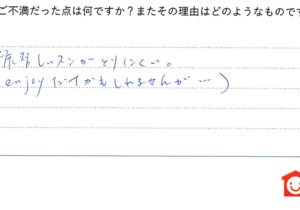 ご不満だった点は何ですか？またその理由はどのようなものです
振替レッスンがとりにくい。
(enjoyだけかもしれませんが…)